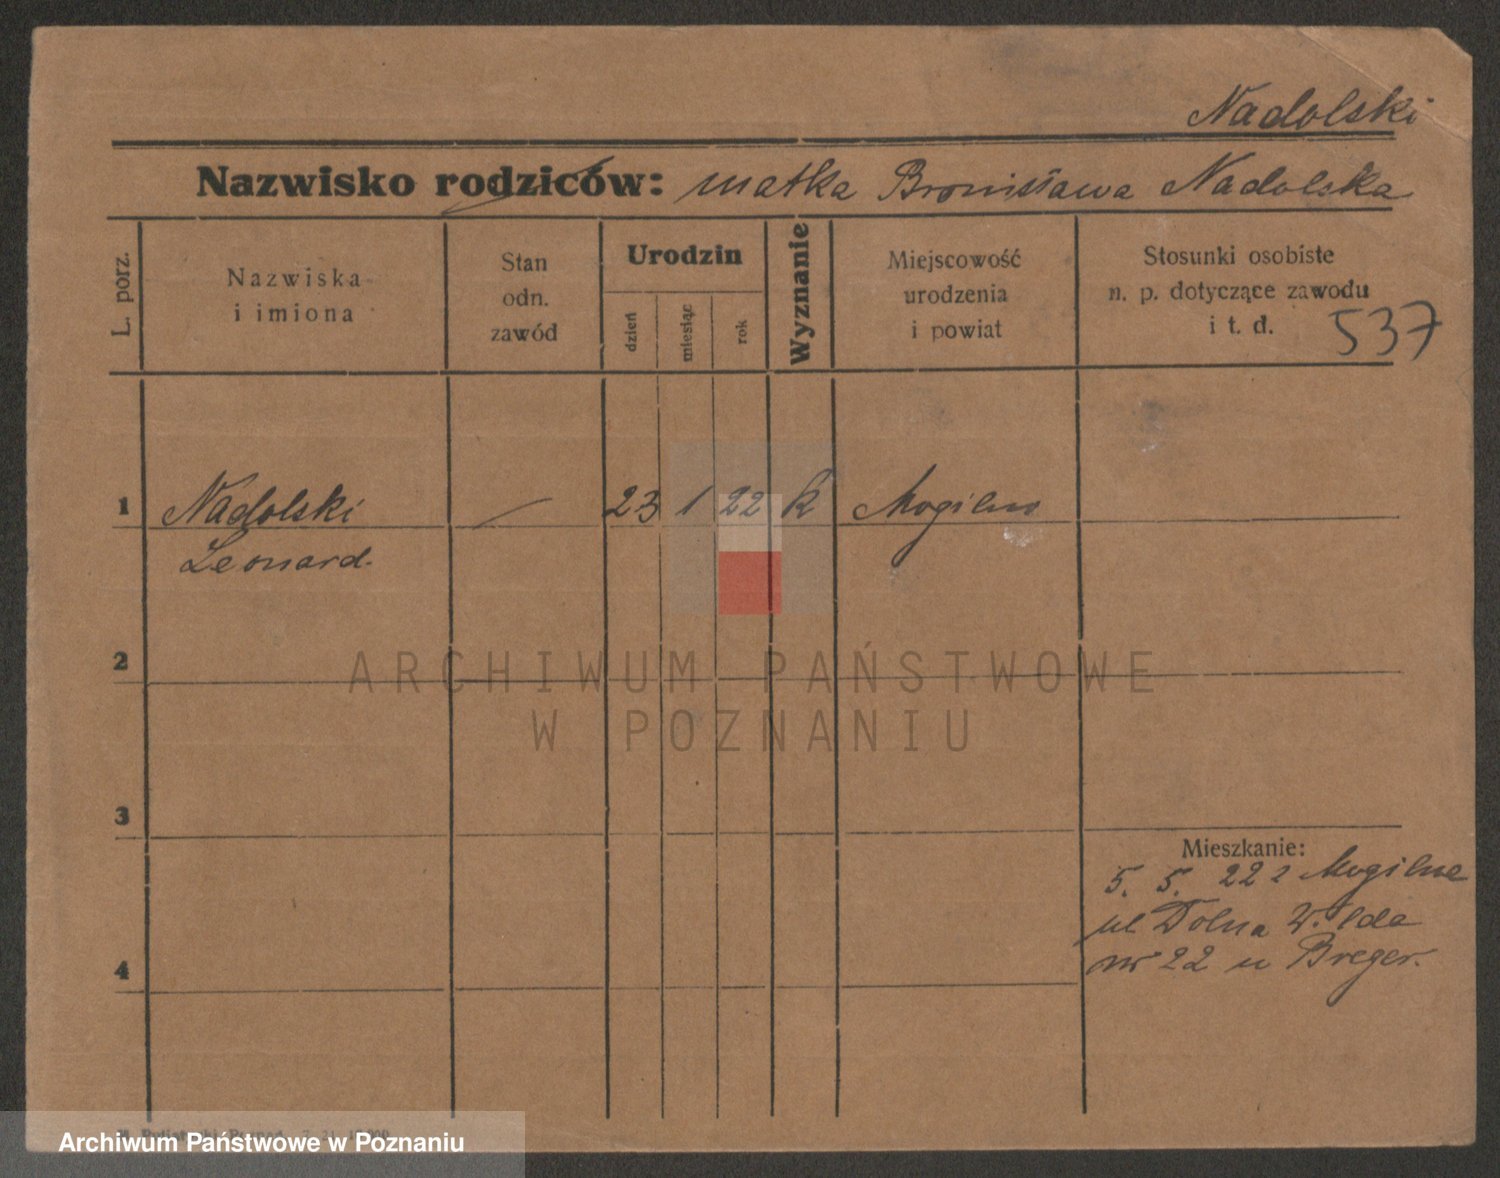 Nadolski
Nazwisko rodziców: matka Bronisława Nadolska
L. porz.
Nazwiska
i imiona
Stan
odn.
zawód
Urodzin
dzień
miesiąc
rok
Wyznanie
Miejscowość
urodzenia
i powiat
Stosunki osobiste
n. p. dotyczące zawodu
i t. d.
537
1 Nadolski 23 1 22 k Mogilno
Leonard.
2
ARCHIWUM PAŃSTWOWE
W POZNANIU
3
Mieszkanie:
5. 5. 22 z Mogilna
ul Dolna Wilda
nr 22 u Breger.
4
Archiwum Państwowe w Poznaniu